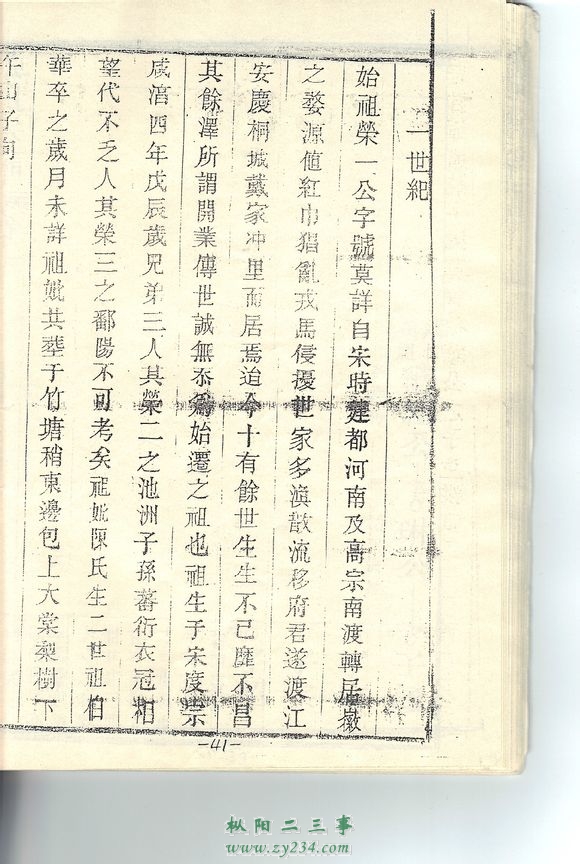 一世紀
始祖榮一公字號莫詳自宋時建都河南及高宗南渡轉居徽
之婺源値紅巾猖亂戎馬侵擾世家多滇散流移府君遂渡江
安慶桐城戴家冲里而居焉迨今十有餘世生生不已靡不昌
其餘澤所謂開業傳世誠無忝爲始遷之祖也祖生于宋度崇
咸淳四年戊辰歲兄弟三人其榮二之池洲子孫蕃衍衣冠相
望代不乏人其榮三之鄱陽不可考矣祖妣陳氏生二世祖伯
華卒之歲月未詳祖妣共塟于竹塘稍東邊包上大棠梨樹下
午山子向
-41-
枞阳二三事
www.zy234.com